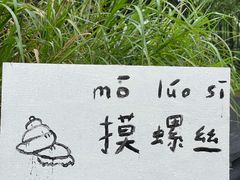 mō luó sī
摸螺丝